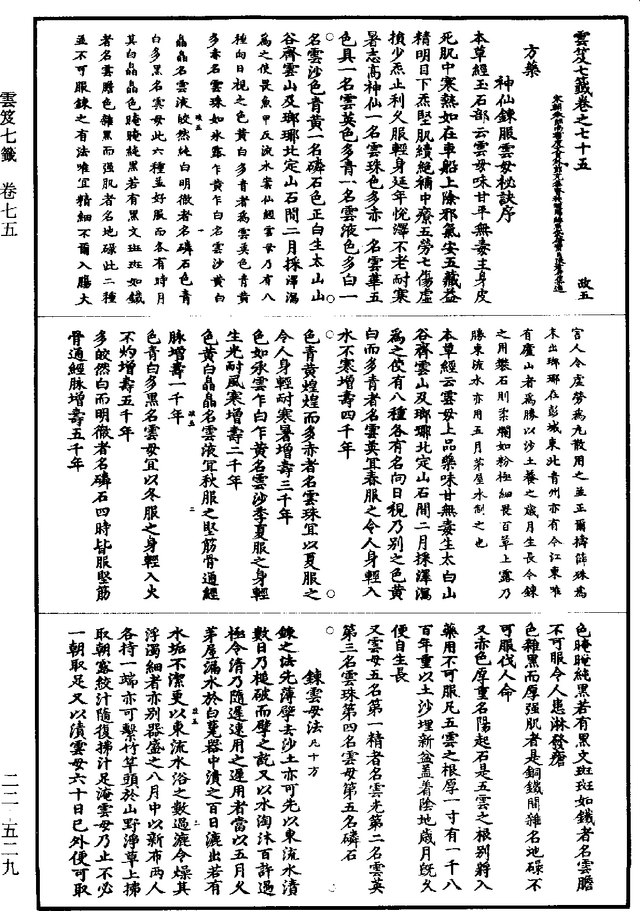 雲笈七籤卷之七十五 政五
方藥
神仙鍊服雲母秘訣序
本草經玉石部云雲母味甘平無毒主身皮
死肌中寒熱如在車船上除邪氣安五藏益
精明目下炁堅肌續絕補中療五勞七傷虛
損少炁止利久服輕身延年悅澤不老耐寒
暑志高神仙一名雲珠色多赤一名雲華五
色具一名雲英色多青一名雲液色多白一
名雲沙色青黃一名磷石色正白生太山山
谷齊雲山及瑯瑘北定山石間二月採澤瀉
為之使畏魚甲反流水案仙經雲母乃有八
種向日視之色黃白多青者為雲英色青黃
多赤名雲珠如水露乍黃乍白名雲沙黃白
皛皛名雲液皎然純白明徹者名磷石色青
白多黑名雲母此六種並好服而各有時月
其白皛皛色腌腌純黑若有黑文斑斑如鐵
者名雲膽色雜黑而强肌者名地碌此二種
並不可服鍊之有法唯宜精細不爾入腸大
害人今虛勞為丸散用之並正爾擣篩殊為
未出瑯瑯在彭城東北青州亦有今江東唯
有廬山者為勝以沙土養之歲月生長今鍊
之用礬石則柔爛如粉極細畏百草上露乃
勝東流水亦用五月茅屋水制之也
本草經云雲母上品藥味甘無毒生太白山
谷齊雲山及瑯瑘北定山石間二月採澤瀉
為之使有八種各有名向日視乃別之色黃
白而多青者名雲英宜春服之令人身輕入
水不寒增壽四千年
色青黃煌煌而多赤者名雲珠宜以夏服之
令人身輕耐寒暑增壽三千年
色如氷雲乍白乍黃名雲沙季夏服之身輕
生光耐風寒增壽二千年
色黃白皛皛名雲液宜秋服之堅筋骨通經
脉增壽一千年
色青白多黑名雲母宜以冬服之身輕入火
不灼增壽五千年
多皎然白而明徹者名磷石四時皆服堅筋
骨通經脉增壽五千年
色腌腌純黑若有黑文斑斑如鐵者名雲膽
不可服令人患淋發瘡
色雜黑而厚强肌者是銅鐵間雜名地碌不
可服伐人命
又赤色厚重名陽起石是五雲之根別將入
藥用不可服凡五雲之根厚一寸有一千八
百年重以土沙埋新盆蓋著陰地歲月旣久
便自生長
又雲母五名第一精者名雲光第二名雲英
第三名雲珠第四名雲母第五名磷石
鍊雲母法 凡十方
鍊之法先薄擘去沙土亦可先以東流水漬
數日乃槌破而擘之訖又以水淘沐百許過
極令清乃隨遲速用之遲用者當以五月久
茅屋漏水於白瓷器中漬之百日漉出若有
水垢不潔更以東流水浴之數過漉令燥其
浮濁細者亦別器盛之八月中以新布兩人
各持一端亦可繫竹竿頭於山野淨草上拂
取朝露絞汁隨復拂汁足淹雲母乃止不必
一朝取足又以漬雲母六十日已外便可取
雲笈七籤 卷七五
二二·五二九